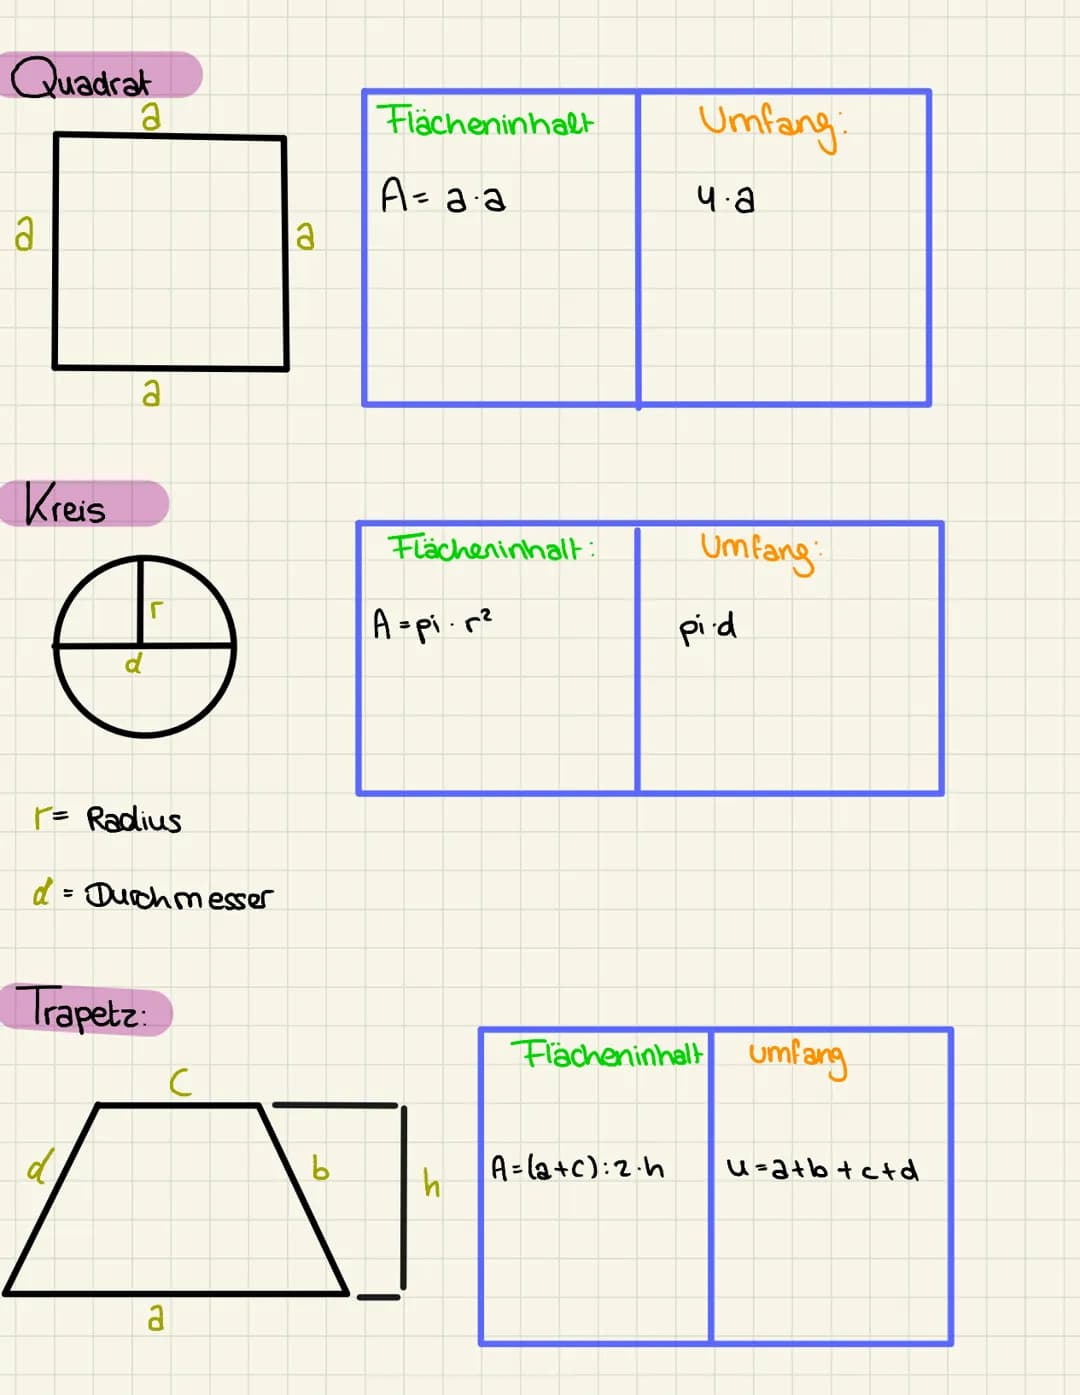 Quadrat
a
a
a
a
Flächeninhalt
Umfang:
A = a·a
4·a
Kreis
r
d
Flächeninhalt:
Umfang:
A = pi · r²
pi·d
r = Radius
d = Durchmesser
Trapetz:
c
d
b
h
a
Flächeninhalt
umfang
A=(a+c):2·h
u=a+b+c+d